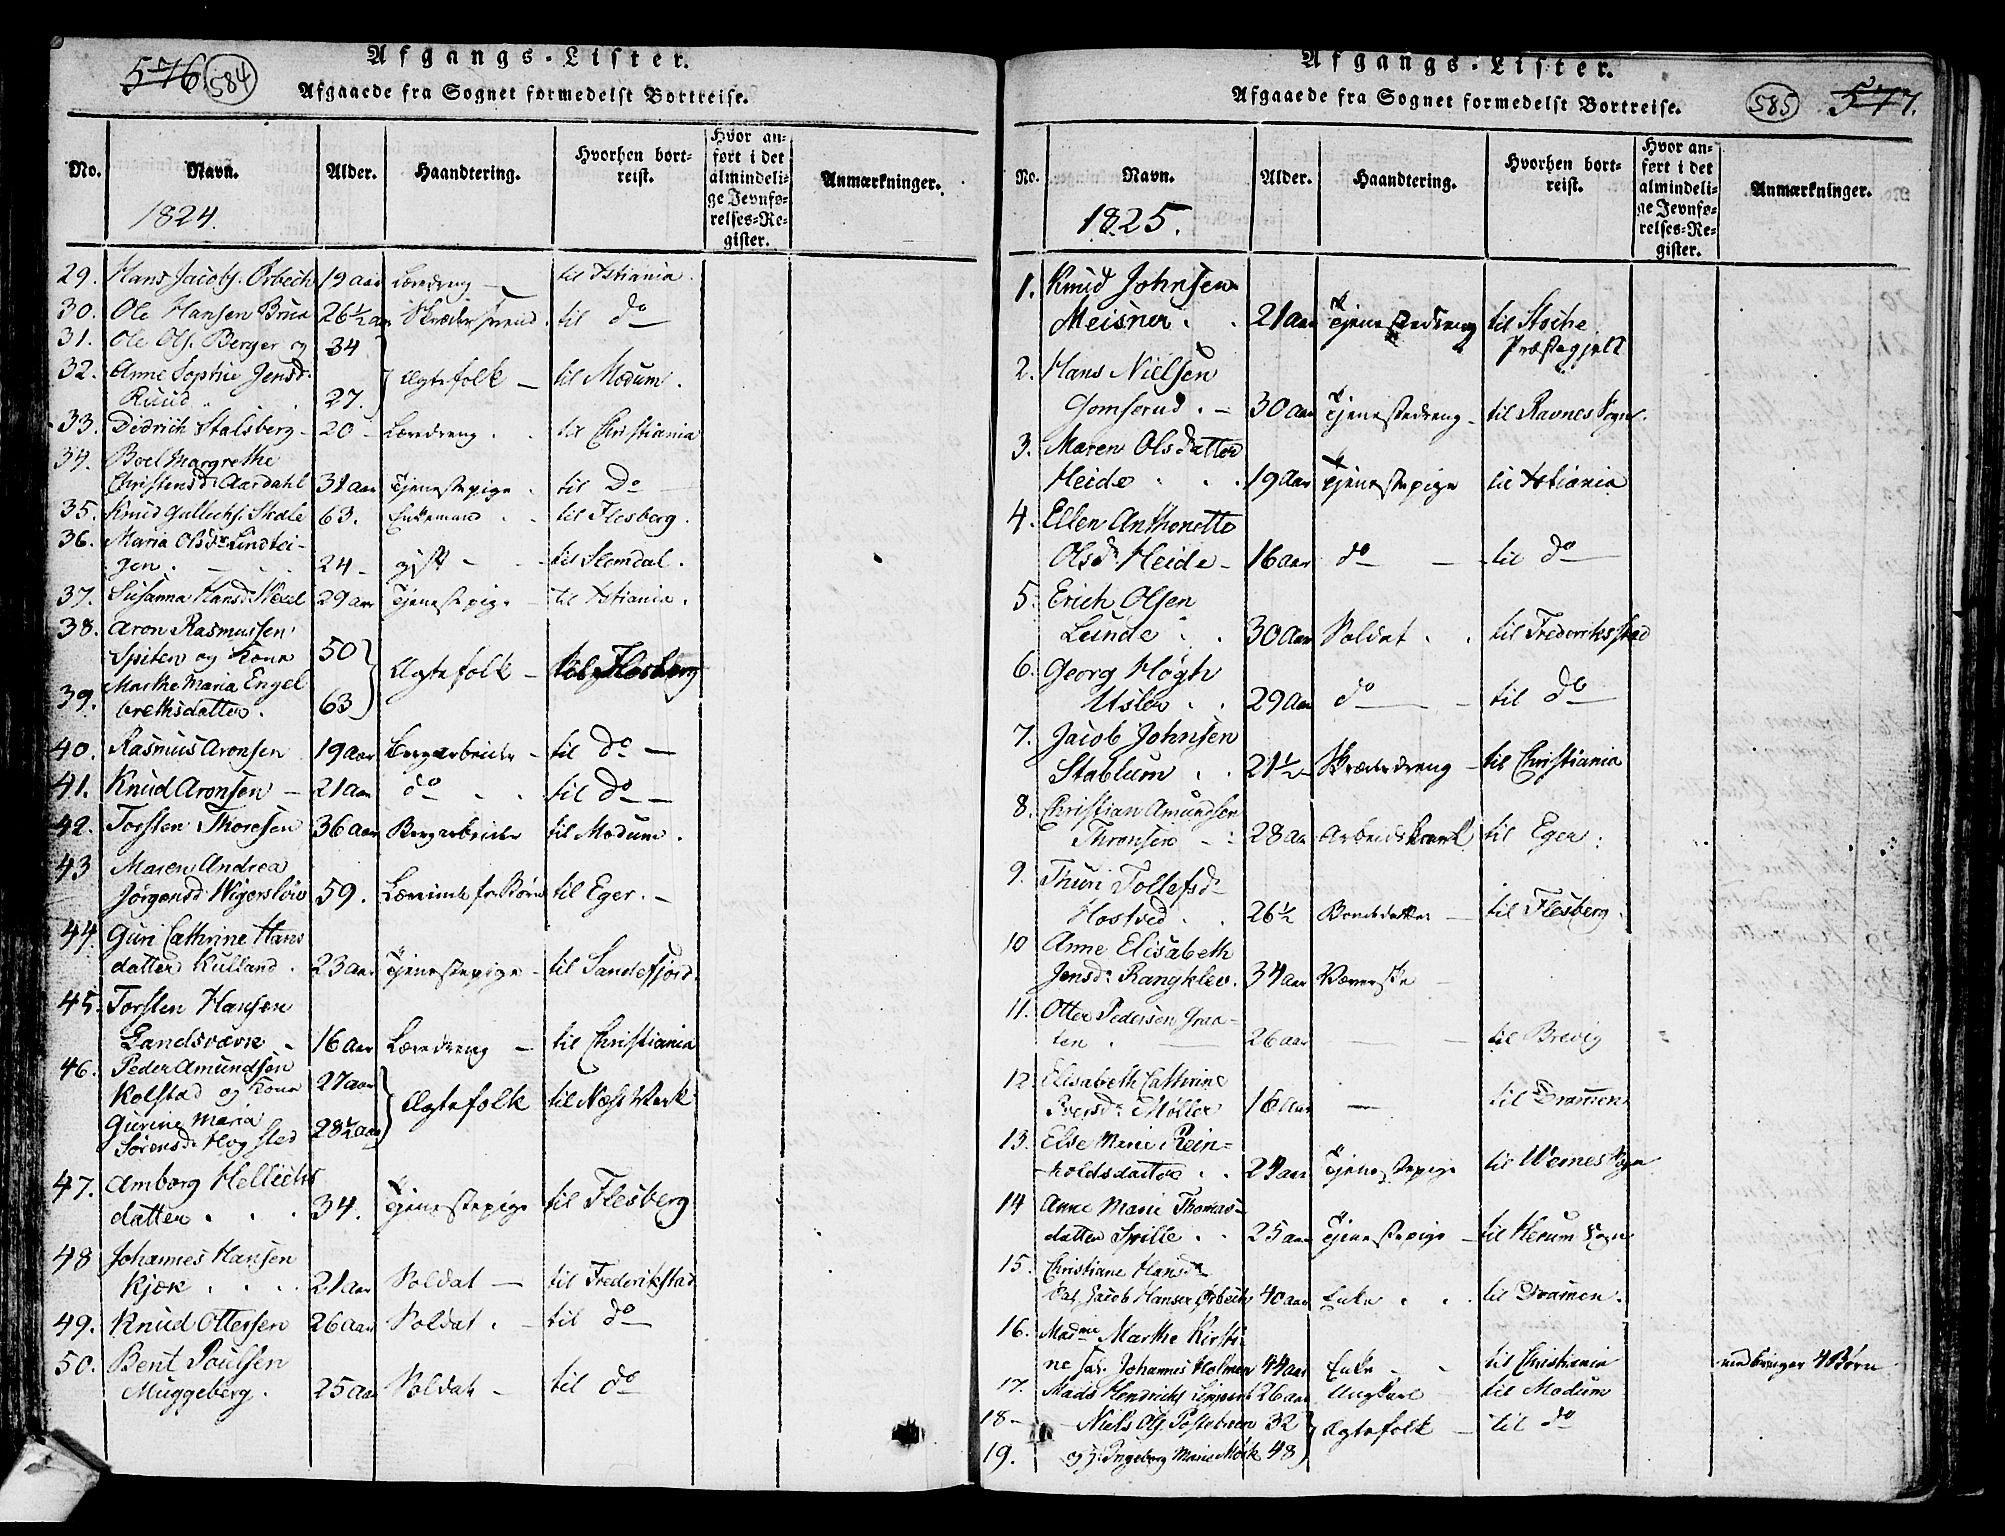 576. 584
Afgangs-Lister.
Afgaaede fra Sognet formedelst Bortreise.
No. Navn. Alder. Haandtering. Hvorhen bort-
reist.
Hvor an-
ført i det
almindeli-
ge Jevnfø-
relses-Re-
gister.
Anmærkninger.
1824.
29. Hans Jacobs. Ørbech 19 aar Læredreng — til Xstiania.
30. Ole Hansen Bruu 26½ aar Skrædersvend. til do —
31. Ole Ols. Berger og 34
32. Anne Sophie Jensd. Ægtefolk — til Modum.
Ruud 27.
33. Didrich Stalsberg — 20 — Læredreng. til Christiania
34. Boel Margrethe
Christensd. Aardahl 31 aar Tjenestepige. til Do —
35. Knud Gullichs. Skole 63. Enkemand. til Flesberg.
36. Maria Olsdr. Lindtei-
gen. 24 — gift — til Slemdal.
37. Susanna Hansd. 29 aar Tjenestepige — til Xstiania.
38. Aron Rasmussen
Spiten og Kone 50 Ægtefolk — til Flesberg
39. Marthe Maria Engel
brethsdatter. 63
40. Rasmus Aronsen 19 aar Bergarbeider — til do —
41. Knud Aronsen — 21 aar do til do —
42. Torsten Thoresen 36 aar Bergarbeider til Modum.
43 Maren Andrea
Jørgensd. Wigersløv 59. Lærerinde for Børn til Eger. —
44. Guri Cathrine Hans
datter Kulland. 23 aar Tjenestepige — til Sandefjord.
45. Torsten Hansen
Landsværk — 16 aar Læredreng — til Christiania
46. Peder Amundsen
Kolstad og Kone 27 aar Ægtefolk til Næs Værk
Gurine Maria
Sørensd. Hogsted 28½ aar
47. Amborg Hellichs
datter 34. Tjenestepige til Flesberg
48 Johannes Hansen
Kjær 21 aar Soldat — til Frederikstad
49. Knud Ottersen 26 aar Soldat. — til do —
50. Bent Poulsen
Muggeberg. 25 aar Soldat — til do
Afgangs-Lister.
Afgaaede fra Sognet formedelst Bortreise. 585 577.
No. Navn. Alder. Haandtering. Hvorhen bort-
reist.
Hvor an-
ført i det
almindeli-
ge Jevnfø-
relses-Re-
gister.
Anmærkninger.
1825.
1. Knud Johnsen
Meisner 21 aar Tjenestedreng til Stoche
Præstegjelt
2. Hans Nielsen
Gomserud. — 30 aar Tjenestedreng — til Ravnes Sogn.
3. Maren Olsdatter
Heide 19 aar Tjenestepige til Xstiania
4. Ellen Anthonette
Olsdr. Heide — 16 aar do — til do —
5. Erich Olsen
Lunde 30 aar Soldat til Frederiksstad
6. Georg Høgh
Usler 29 aar do — til do —
7. Jacob Johnsen
Stablum 21½ — Skræderdreng — til Christiania
8. Christian Amundsen
Thronsen — 28 aar Arbeidskarl til Eger.
9. Thuri Tollefsdr.
Hostved 26½ Bondedatter — til Flesberg.
10 Anne Elisabeth
Jensdr. Rangklev. 34 aar Væverske —
11. Otter Pedersen Graa-
ten. — 26 aar — — til Brevig
12. Elisabeth Cathrine
Iversdr. Møller 16 aar — til Drammen
13. Else Marie Rein-
holdsdatter 24 aar Tjenestepige til Wernes Sogn
14 Anne Marie Thomas-
datter Spille 25 aar Tjenestepige — til Herum Sogn
15. Christiane Hansdr.
Sal. Jacob Hansen Ørbech 40 aar Enke til Dramen.
16. Madme Marthe Kirsti-
ne sal. Johannes Holmen 44 aar Enke — til Christiania medbringer 4 Børn
17. Mads Hendrichs. 26 aar Ungkarl til Modum
18 — Niels Ols. 32 Ægtefolk — til do
19. og H. Ingeborg Marie Mørk 48